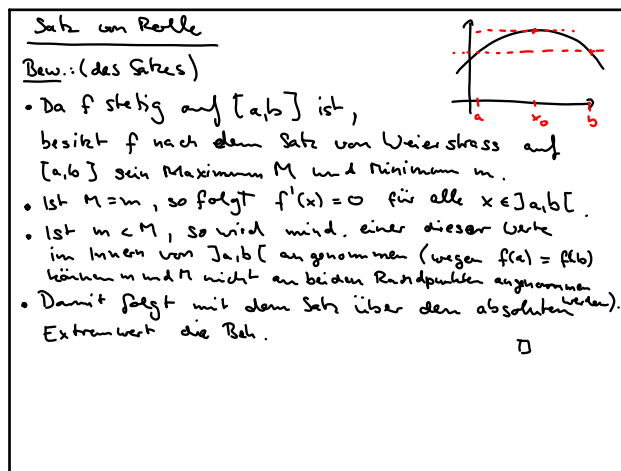 Satz von Rolle
Bew.: (des Satzes)
• Da f stetig auf [a,b] ist,
besitzt f nach dem Satz von Weierstrass auf
[a,b] sein Maximum M und Minimum m.
• Ist M = m, so folgt f'(x) = 0 für alle x ∈ ]a,b[.
• Ist m < M, so wird mind. einer dieser Werte
im Innern von ]a,b[ angenommen (wegen f(a) = f(b)
können m und M nicht an beiden Randpunkten angenommen
werden).
• Damit folgt mit dem Satz über den absoluten
Extremwert die Beh.
□
a x₀ b